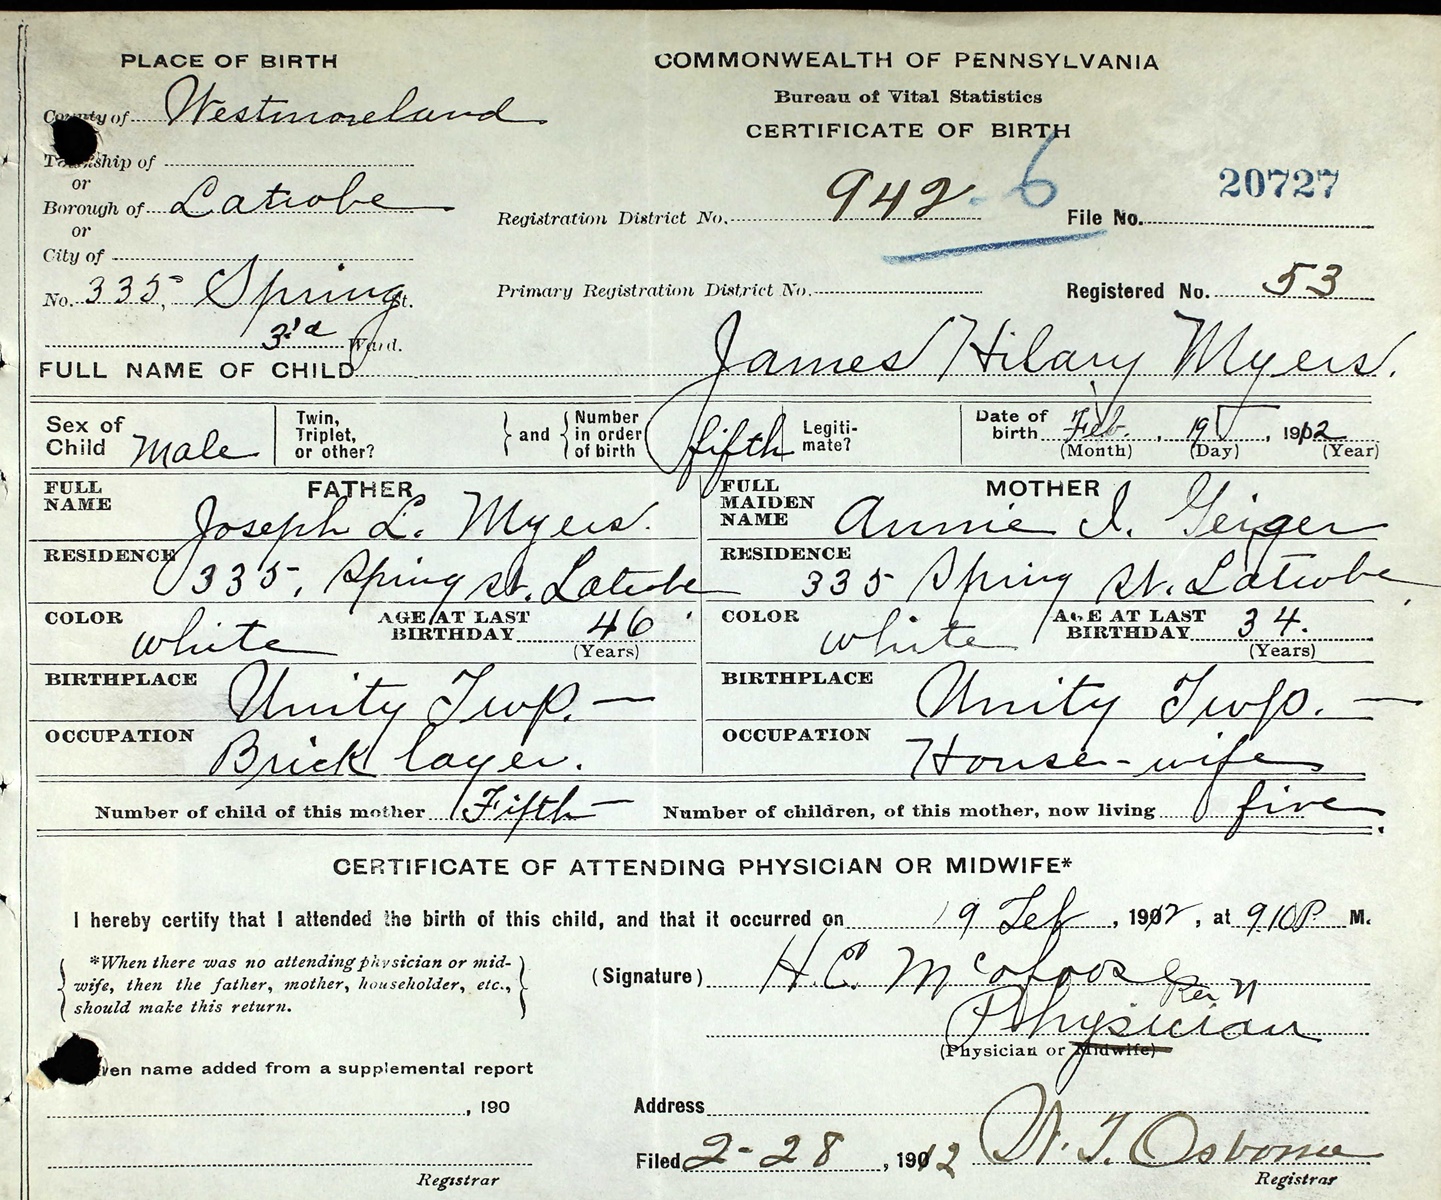 PLACE OF BIRTH
COMMONWEALTH OF PENNSYLVANIA
Bureau of Vital Statistics
CERTIFICATE OF BIRTH
County of Westmoreland
Township of
or
Borough of Latrobe
or
City of
No. 335, Spring St.
3'd Ward.
Registration District No. 942-6
File No. 20727
Primary Registration District No.
Registered No. 53
FULL NAME OF CHILD James Hilary Myers.
Sex of Child Male
Twin, Triplet, or other?
and
Number in order of birth fifth
Legitimate?
Date of birth Feb. , 19 , 1912
(Month) (Day) (Year)
FATHER
FULL NAME Joseph L. Myers.
RESIDENCE 335, Spring St. Latrobe
COLOR white
AGE AT LAST BIRTHDAY 46
(Years)
BIRTHPLACE Unity Twp. —
OCCUPATION Brick layer.
MOTHER
FULL MAIDEN NAME Annie I. Geiger
RESIDENCE 335 Spring St. Latrobe
COLOR white
AGE AT LAST BIRTHDAY 34.
(Years)
BIRTHPLACE Unity Twp. —
OCCUPATION House-wife
Number of child of this mother Fifth —
Number of children, of this mother, now living five.
CERTIFICATE OF ATTENDING PHYSICIAN OR MIDWIFE*
I hereby certify that I attended the birth of this child, and that it occurred on 19 Feb , 1912, at 910 P. M.
*When there was no attending physician or mid-
wife, then the father, mother, householder, etc.,
should make this return.
(Signature) H. C.
Physician
(Physician or Midwife)
Given name added from a supplemental report
, 190
Registrar
Address
Filed 2-28, 1912 W. T. Osborne
Registrar